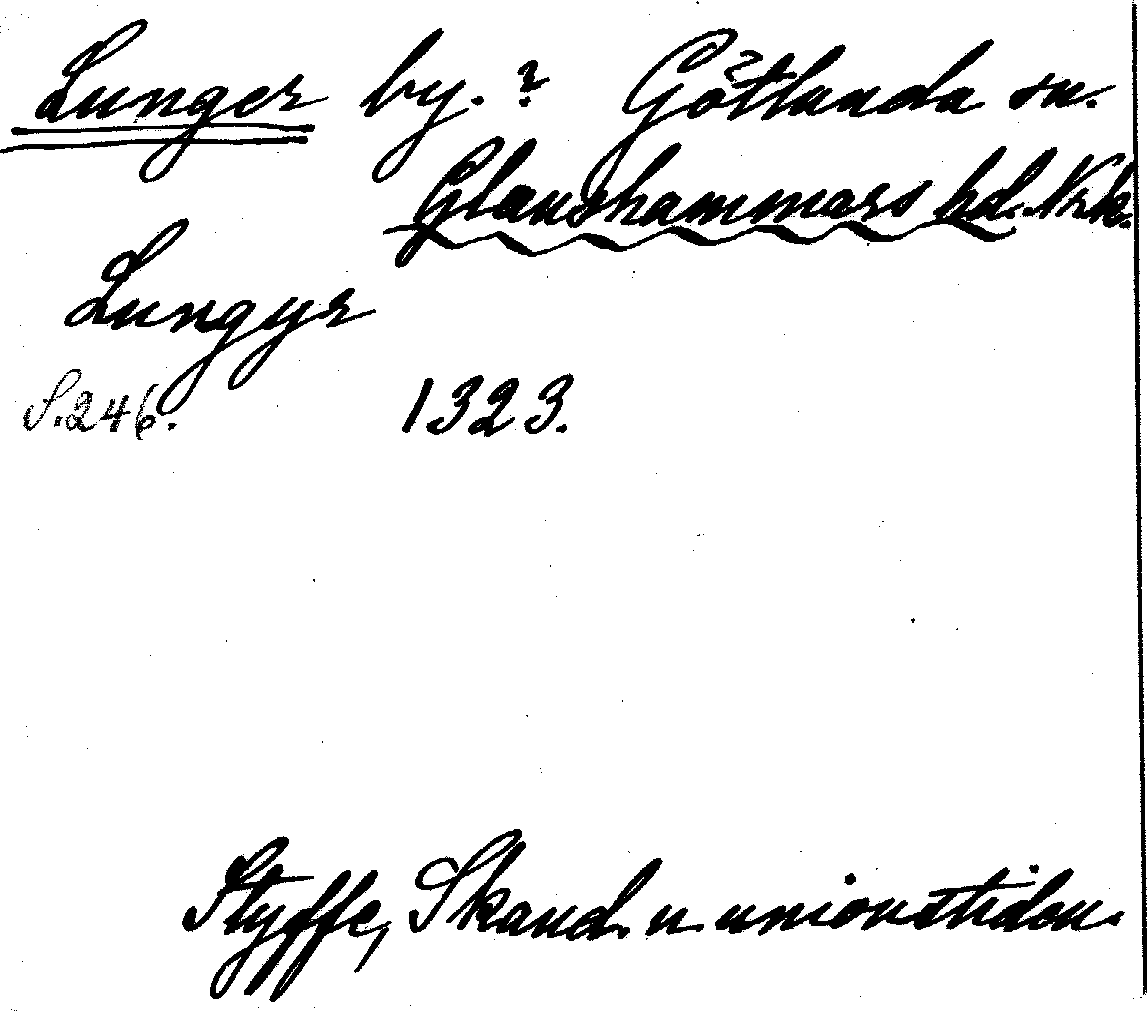 Lunger by. ? Götlunda sn.
Glanshammars hd. Nrk.
Lungyr
S. 246. 1323.
Styffe, Skand. u. unionstiden.